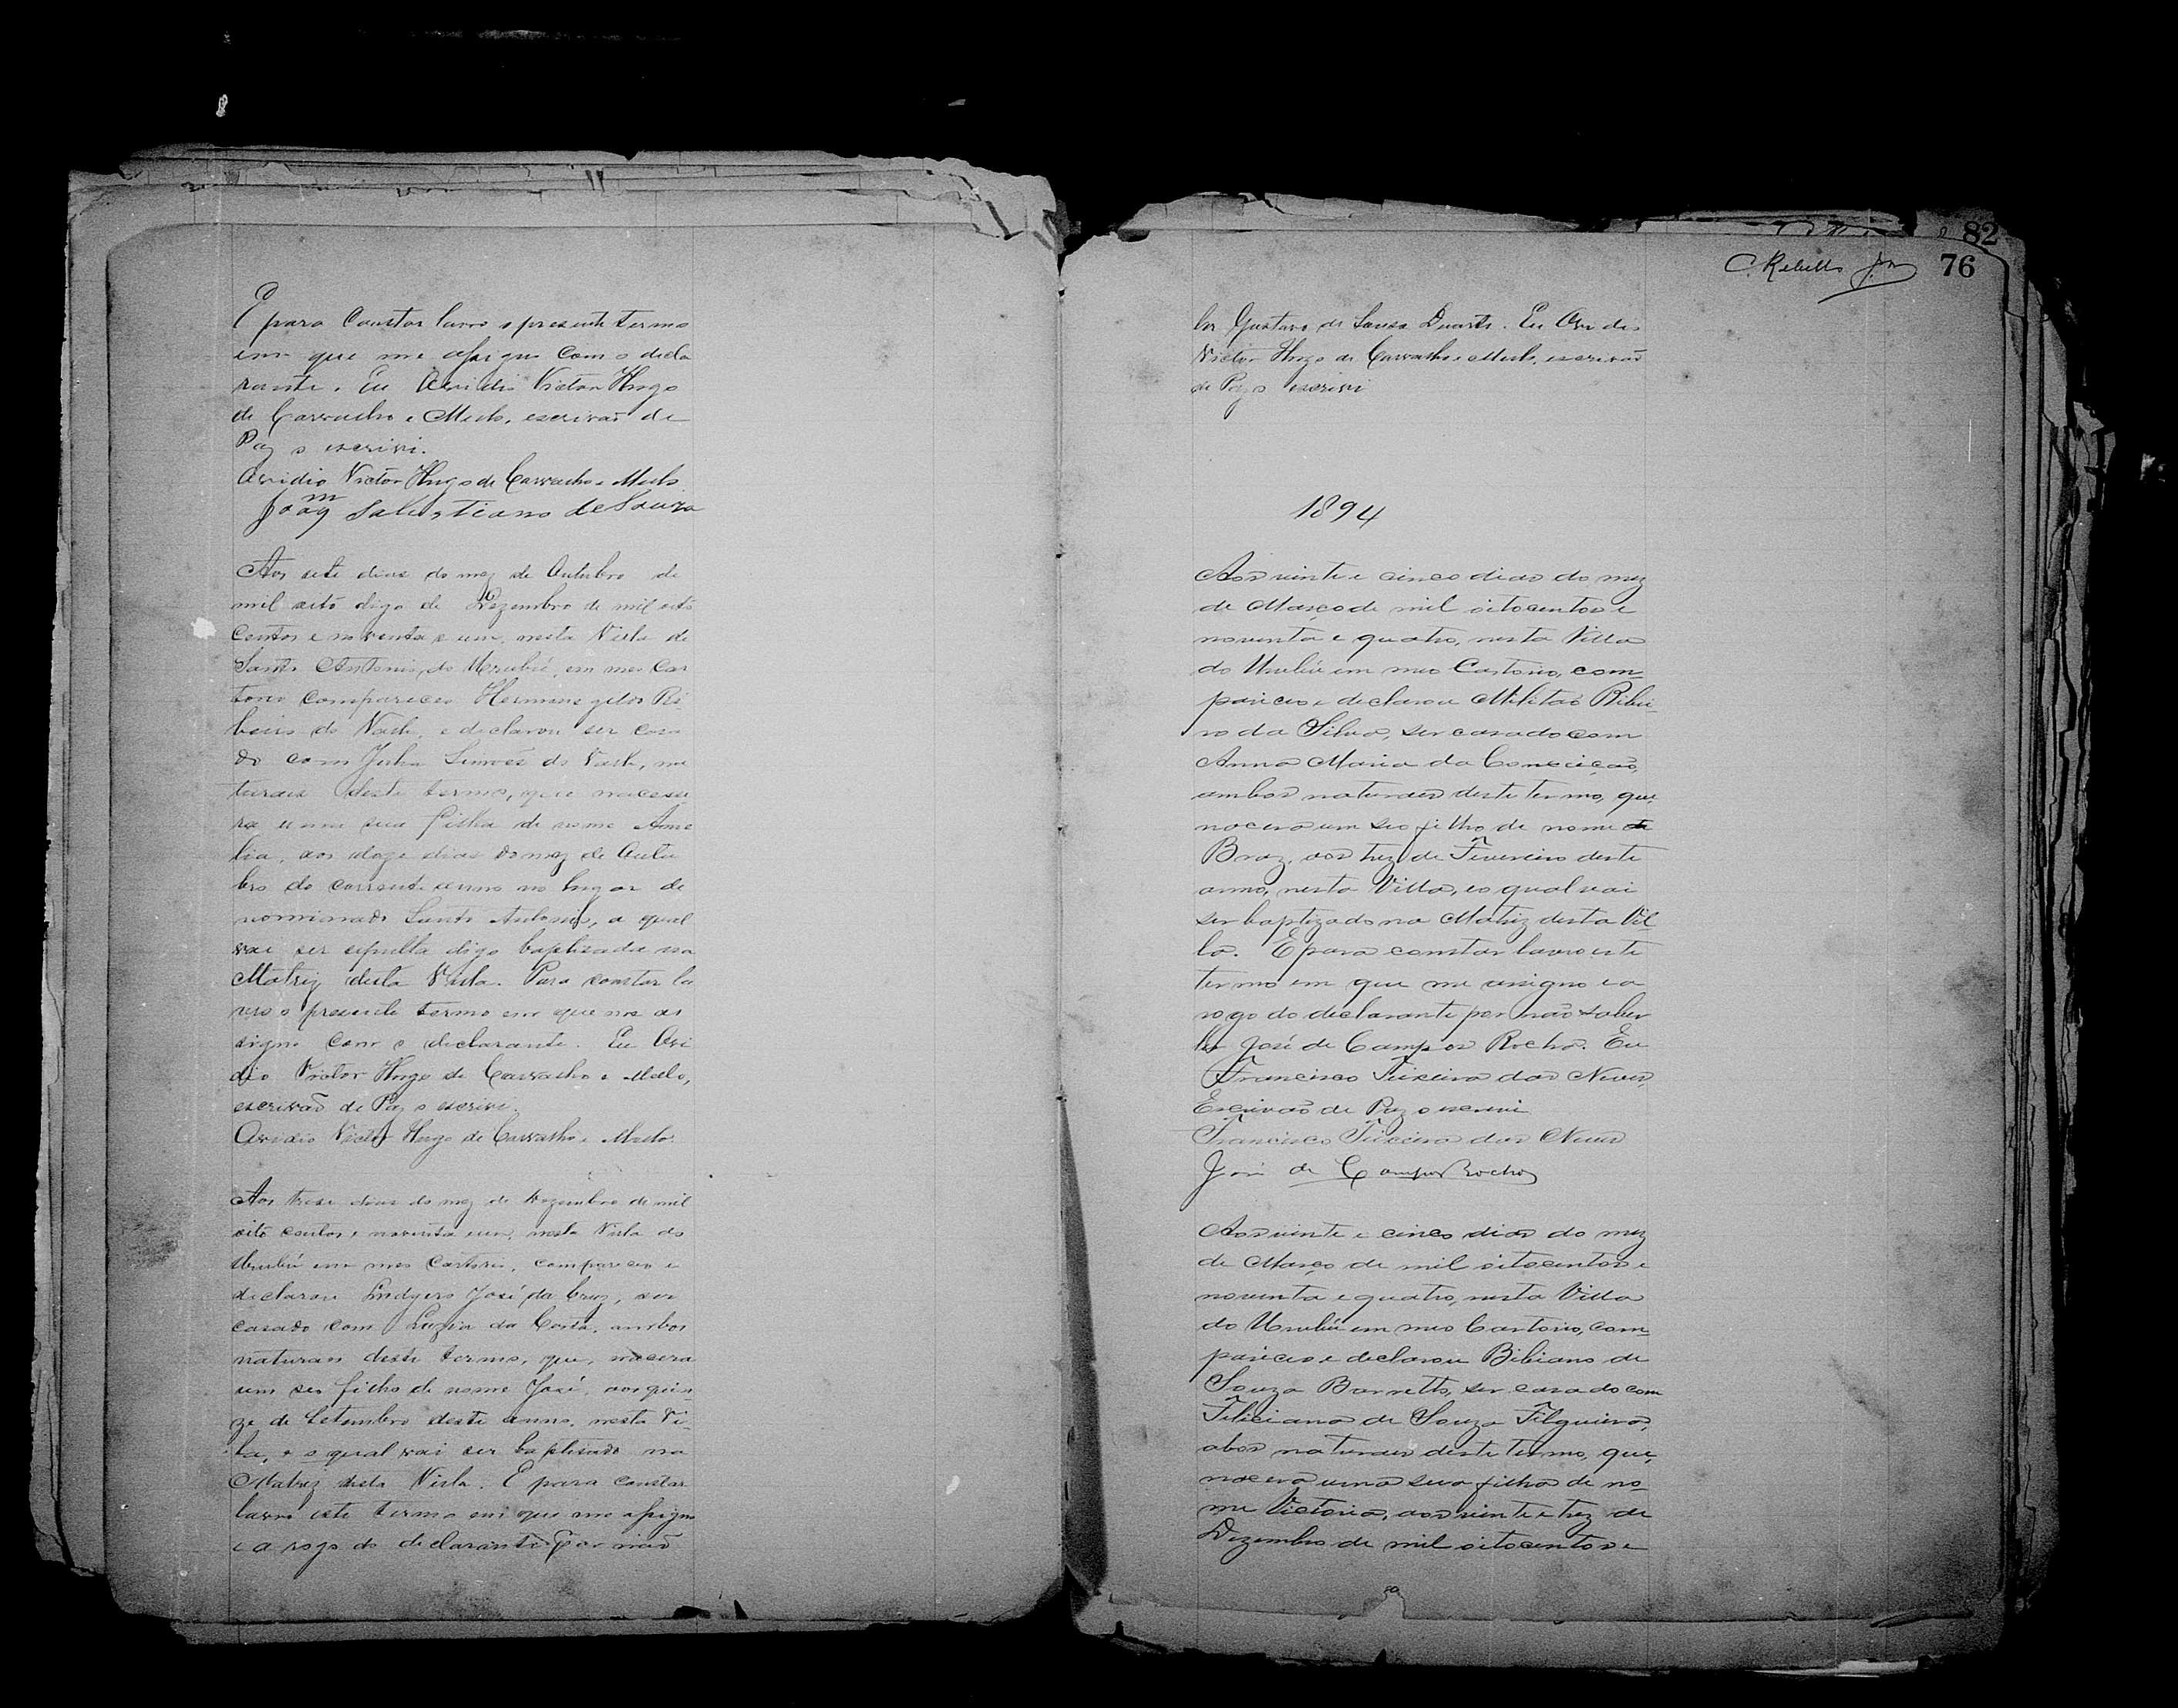 E para Constar lavro o presente termo
em que me assigno com o decla
rante. Eu Ovidio Victor Hugo
de Carvalho e Mello, escrivão de
Paz o escrivi.
Ovidio Victor Hugo de Carvalho e Mello
Joaqm Salustiano de Souza
Aos sete dias do mez de Outubro de
mil oito digo de Dezembro de mil oito
centos e noventa e um, nesta Villa de
Santo Antonio do Urubú, em meo Car
torio compareceo Hermenegildo Ri
beiro do Valle, e declarou ser casa
do com Julia Simões do Valle, na
turaes deste termo, que nascera
uma sua filha de nome Ame
lia, aos doze dias do mez de Outu
bro do corrente anno no lugar de
nominado Santo Antonio, a qual
vai ser sepulta digo baptisada na
Matriz desta Villa. Para constar la
vro o presente termo em que me as
signo com o declarante. Eu Ovi
dio Victor Hugo de Carvalho e Mello,
escrivão de Paz o escrivi.
Ovidio Victor Hugo de Carvalho e Mello
Aos treze dias do mez de Dezembro de mil
oito centos e noventa e um, nesta Villa do
Urubú em meo Cartorio, compareceo e
declarou José da Cruz, ser
casado com Luzia da Costa, ambos
naturaes deste termo, que, nascera
um seo filho de nome José, aos quin
ze de Setembro deste anno, nesta Vi-
lla, e o qual vai ser baptisado na
Matriz desta Villa. E para constar
lavro este termo em que me assigno
e a rogo do declarante por não
82
C. Rebello Jor 76
ler Gustavo de Souza Duarte. Eu Ovidio
Victor Hugo de Carvalho e Mello, escrivão
de Paz o escrivi
1894
Aos vinte e cinco dias do mez
de Março de mil oitocentos e
noventa e quatro, nesta Villa
do Urubú em meo Cartorio, com-
pareceo e declarou Militão Ribei-
ro da Silva, ser casado com
Anna Maria da Conceição,
ambos naturaes deste termo, que,
nascera um seo filho de nome
Braz, aos trez de Fevereiro deste
anno, nesta Villa, e o qual vai
ser baptizado na Matriz desta Vil
la. E para constar lavro este
termo em que me assigno e a
rogo do declarante por não saber
ler José de Campos Rocha. Eu
Francisco Teixeira das Neves,
Escrivão de Paz o escrevi
Francisco Teixeira das Neves
José de Campos Rocha
Aos vinte e cinco dias do mez
de Março de mil oitocentos e
noventa e quatro, nesta Villa
do Urubú em meo Cartorio, com-
pareceo e declarou Bibiano de
Souza Barretto, ser casado com
Feliciana de Souza Filgueira,
abos naturaes deste termo, que,
nascera uma sua filha de no-
me Victoria, aos vinte e trez de
Dezembro de mil oitocentos e